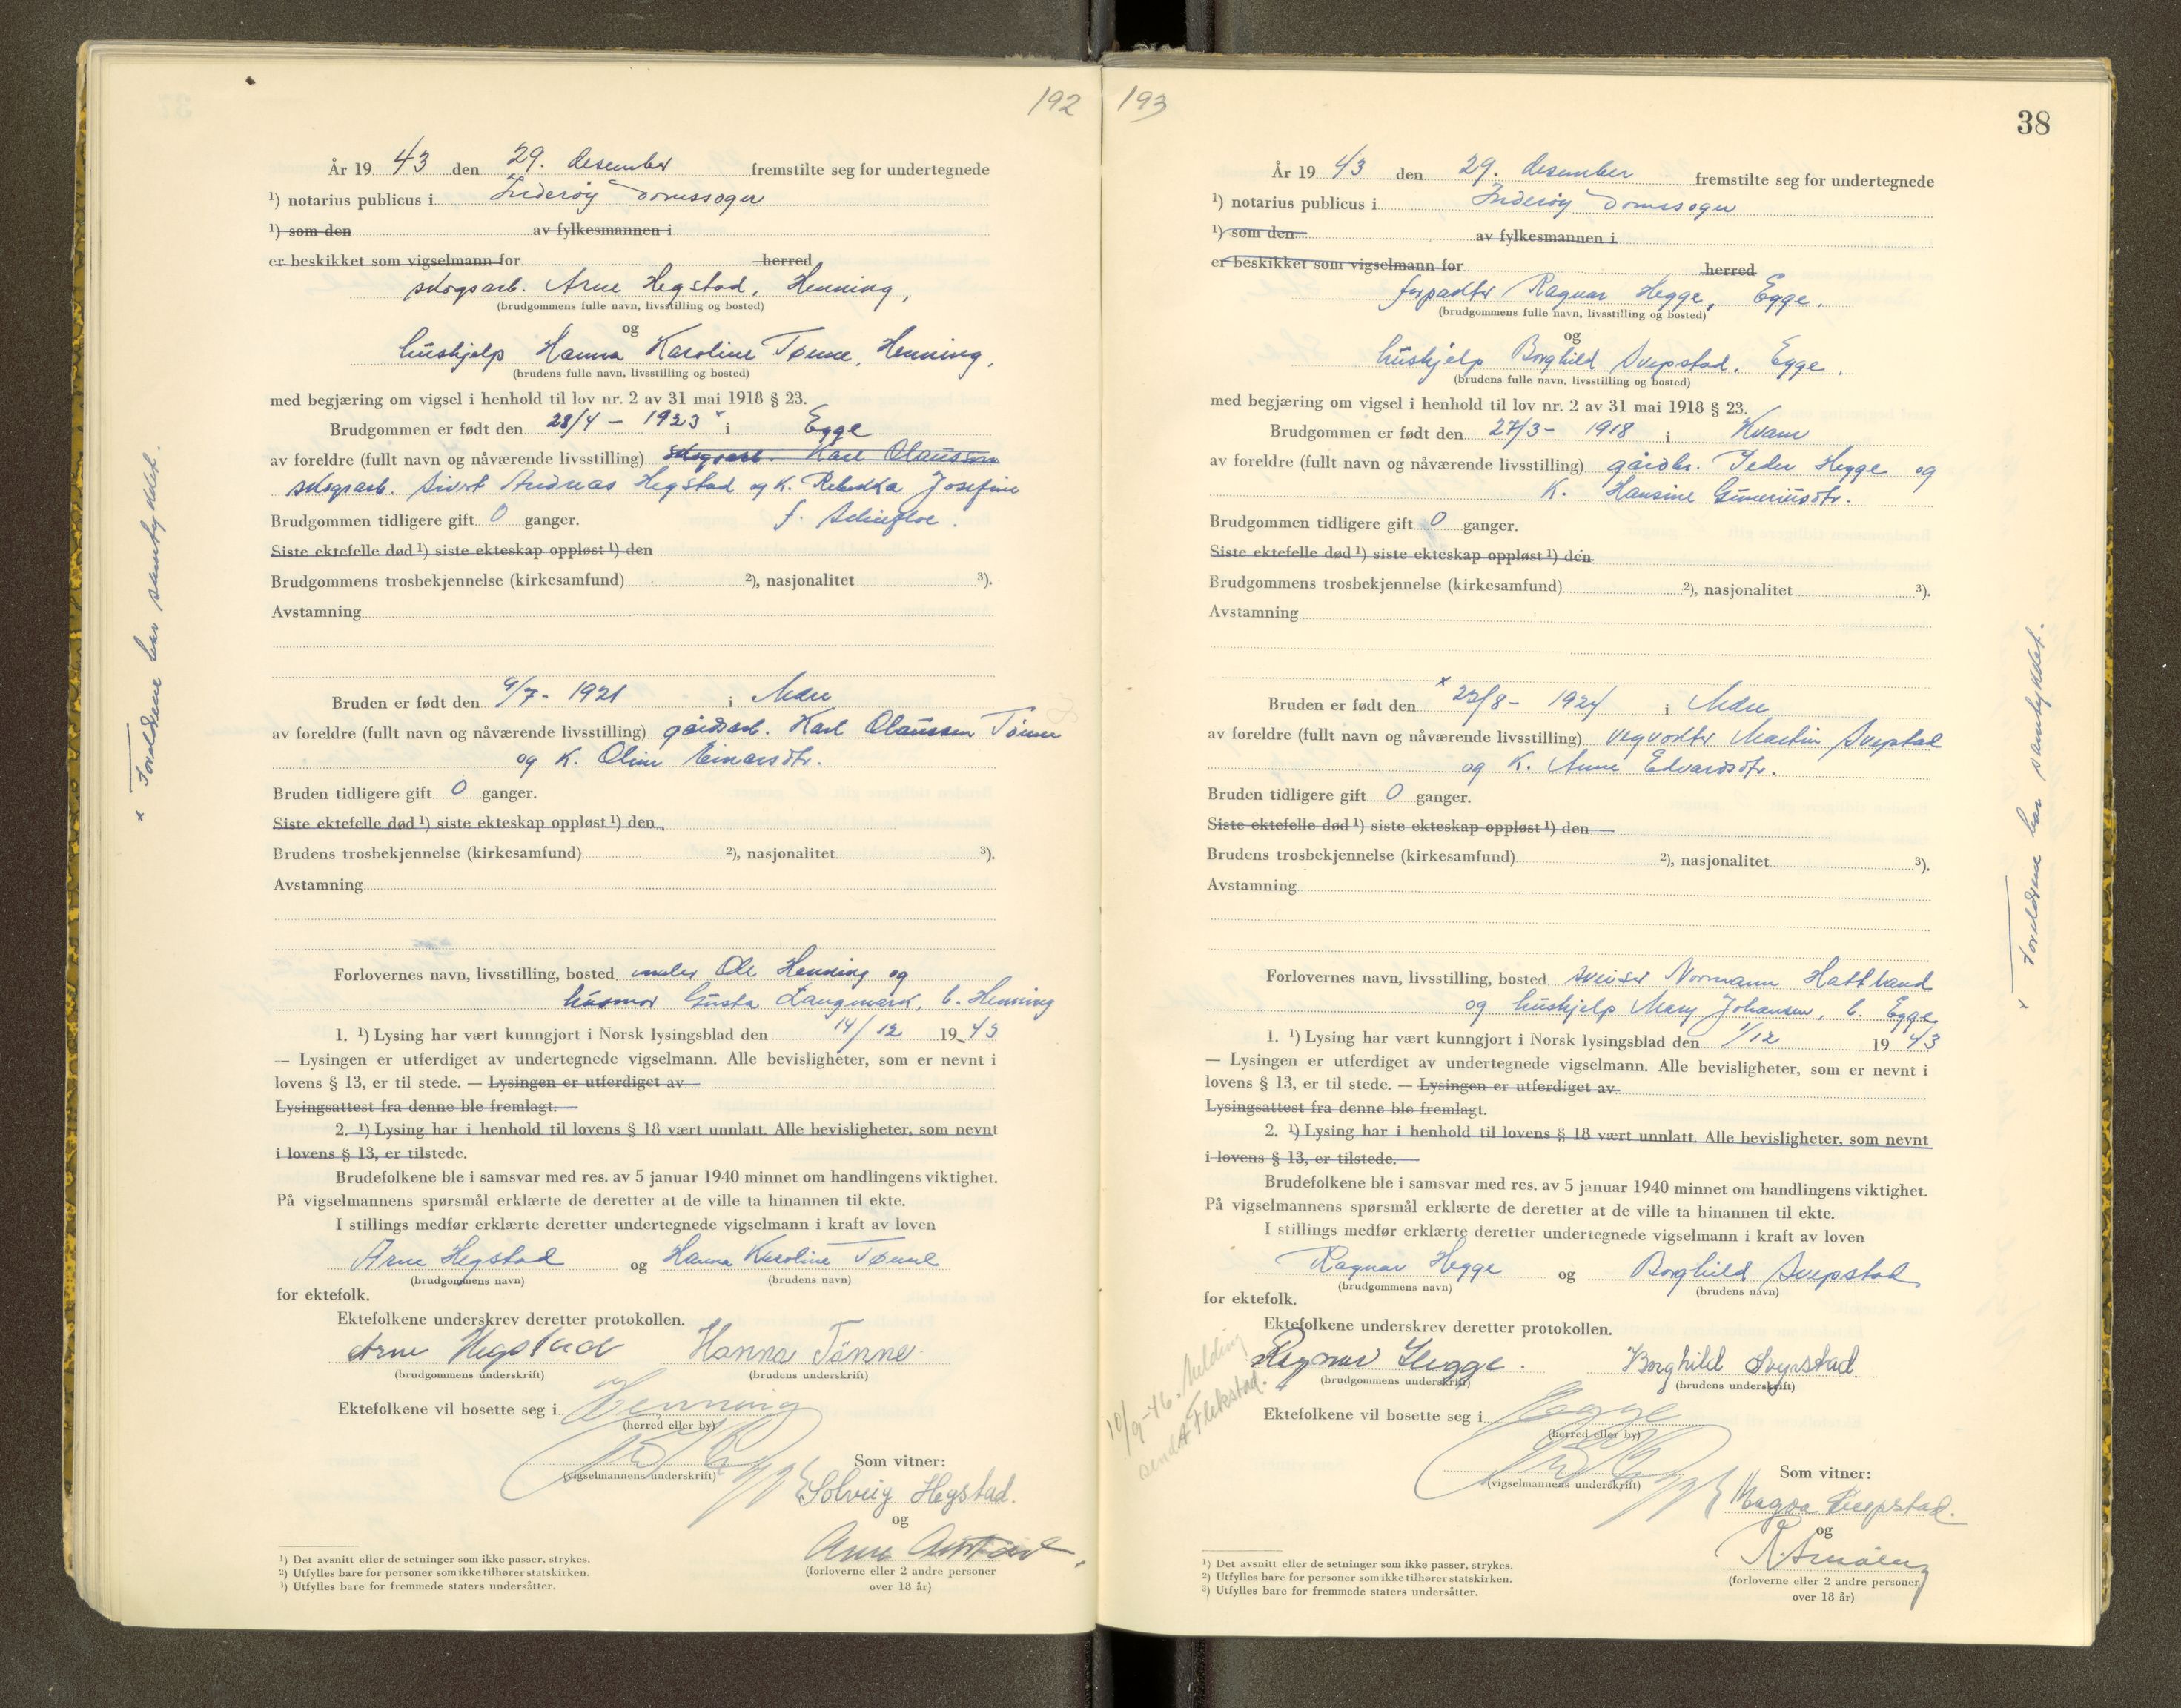 192
År 19 43 den 29. desember fremstilte seg for undertegnede
¹) notarius publicus i Inderøy domssogn
¹) som den av fylkesmannen i
er beskikket som vigselmann for herred
skogsarb. Arne Hegstad, Henning,
(brudgommens fulle navn, livsstilling og bosted)
og
hushjelp Hanna Karoline Tønne, Henning,
(brudens fulle navn, livsstilling og bosted)
med begjæring om vigsel i henhold til lov nr. 2 av 31 mai 1918 § 23.
Brudgommen er født den 28/4 - 1923 x i Egge
av foreldre (fullt navn og nåværende livsstilling) skogsarb. Karl Olaussen
skogsarb. Sivert Andreas Hegstad og k. Rebekka Josefine
Brudgommen tidligere gift 0 ganger. f.
Siste ektefelle død ¹) siste ekteskap oppløst ¹) den
Brudgommens trosbekjennelse (kirkesamfund) ²), nasjonalitet ³).
Avstamning
Bruden er født den 9/7 - 1921 i Mære
av foreldre (fullt navn og nåværende livsstilling) gårdsarb. Karl Olaussen Tønne
og k. Oline Einarsdtr.
Bruden tidligere gift 0 ganger.
Siste ektefelle død ¹) siste ekteskap oppløst ¹) den
Brudens trosbekjennelse (kirkesamfund) ²), nasjonalitet ³).
Avstamning
Forlovernes navn, livsstilling, bosted maler Ole Henning og
husmor Gusta Langmark, b. Henning
1. ¹) Lysing har vært kunngjort i Norsk lysingsblad den 14/12 19 43
— Lysingen er utferdiget av undertegnede vigselmann. Alle bevisligheter, som er nevnt i
lovens § 13, er til stede. — Lysingen er utferdiget av
Lysingsattest fra denne ble fremlagt.
2. ¹) Lysing har i henhold til lovens § 18 vært unnlatt. Alle bevisligheter, som nevnt
i lovens § 13, er tilstede.
Brudefolkene ble i samsvar med res. av 5 januar 1940 minnet om handlingens viktighet.
På vigselmannens spørsmål erklærte de deretter at de ville ta hinannen til ekte.
I stillings medfør erklærte deretter undertegnede vigselmann i kraft av loven
Arne Hegstad og Hanna Karoline Tønne
(brudgommens navn) (brudens navn)
for ektefolk.
Ektefolkene underskrev deretter protokollen.
Arne Hegstad Hanna Tönne
(brudgommens underskrift) (brudens underskrift)
Ektefolkene vil bosette seg i Henning
(herred eller by)
(vigselmannens underskrift)
Som vitner:
Solveig Hegstad.
og
Arne
(forloverne eller 2 andre personer
over 18 år)
¹) Det avsnitt eller de setninger som ikke passer, strykes.
²) Utfylles bare for personer som ikke tilhører statskirken.
³) Utfylles bare for fremmede staters undersåtter.
x Foreldrene har samtykket.
193
38
År 19 43 den 29. desember fremstilte seg for undertegnede
¹) notarius publicus i Inderøy domssogn
¹) som den av fylkesmannen i
er beskikket som vigselmann for herred
forpakter Ragnar Hegge, Egge,
(brudgommens fulle navn, livsstilling og bosted)
og
hushjelp Borghild Svepstad, Egge,
(brudens fulle navn, livsstilling og bosted)
med begjæring om vigsel i henhold til lov nr. 2 av 31 mai 1918 § 23.
Brudgommen er født den 27/3 - 1918 i Kvam
av foreldre (fullt navn og nåværende livsstilling) gårdbr. Peder Hegge og
k. Hansine Guneriusdtr.
Brudgommen tidligere gift 0 ganger.
Siste ektefelle død ¹) siste ekteskap oppløst ¹) den
Brudgommens trosbekjennelse (kirkesamfund) ²), nasjonalitet ³).
Avstamning
Bruden er født den x 22/8 - 1924 i Mære
av foreldre (fullt navn og nåværende livsstilling) vegvokter Martin Svepstad
og k. Anne Edvardsdtr.
Bruden tidligere gift 0 ganger.
Siste ektefelle død ¹) siste ekteskap oppløst ¹) den
Brudens trosbekjennelse (kirkesamfund) ²), nasjonalitet ³).
Avstamning
Forlovernes navn, livsstilling, bosted sveiser Normann Hattland
og hushjelp Mary Johansen, b. Egge
1. ¹) Lysing har vært kunngjort i Norsk lysingsblad den 1/12 19 43
— Lysingen er utferdiget av undertegnede vigselmann. Alle bevisligheter, som er nevnt i
lovens § 13, er til stede. — Lysingen er utferdiget av
Lysingsattest fra denne ble fremlagt.
2. ¹) Lysing har i henhold til lovens § 18 vært unnlatt. Alle bevisligheter, som nevnt
i lovens § 13, er tilstede.
Brudefolkene ble i samsvar med res. av 5 januar 1940 minnet om handlingens viktighet.
På vigselmannens spørsmål erklærte de deretter at de ville ta hinannen til ekte.
I stillings medfør erklærte deretter undertegnede vigselmann i kraft av loven
Ragnar Hegge og Borghild Svepstad
(brudgommens navn) (brudens navn)
for ektefolk.
Ektefolkene underskrev deretter protokollen.
Ragnar Hegge. Borghild Svepstad
(brudgommens underskrift) (brudens underskrift)
Ektefolkene vil bosette seg i Egge
(herred eller by)
(vigselmannens underskrift)
Som vitner:
Magna Svepstad.
og
(forloverne eller 2 andre personer
over 18 år)
¹) Det avsnitt eller de setninger som ikke passer, strykes.
²) Utfylles bare for personer som ikke tilhører statskirken.
³) Utfylles bare for fremmede staters undersåtter.
x Foreldrene har samtykket.
10/9-46. Melding
sendt Flekstad.